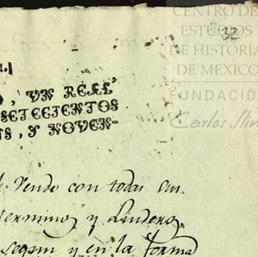 CENTRO DE
ESTUDIOS
DE HISTORIA
DE MEXICO
FUNDACIÓN
Carlos Slim
32
, VN REAL,
SETECIENTOS
, Y NOVEN-
Vendo con todas sus
terminos, y Linderos,
segun y en la forma